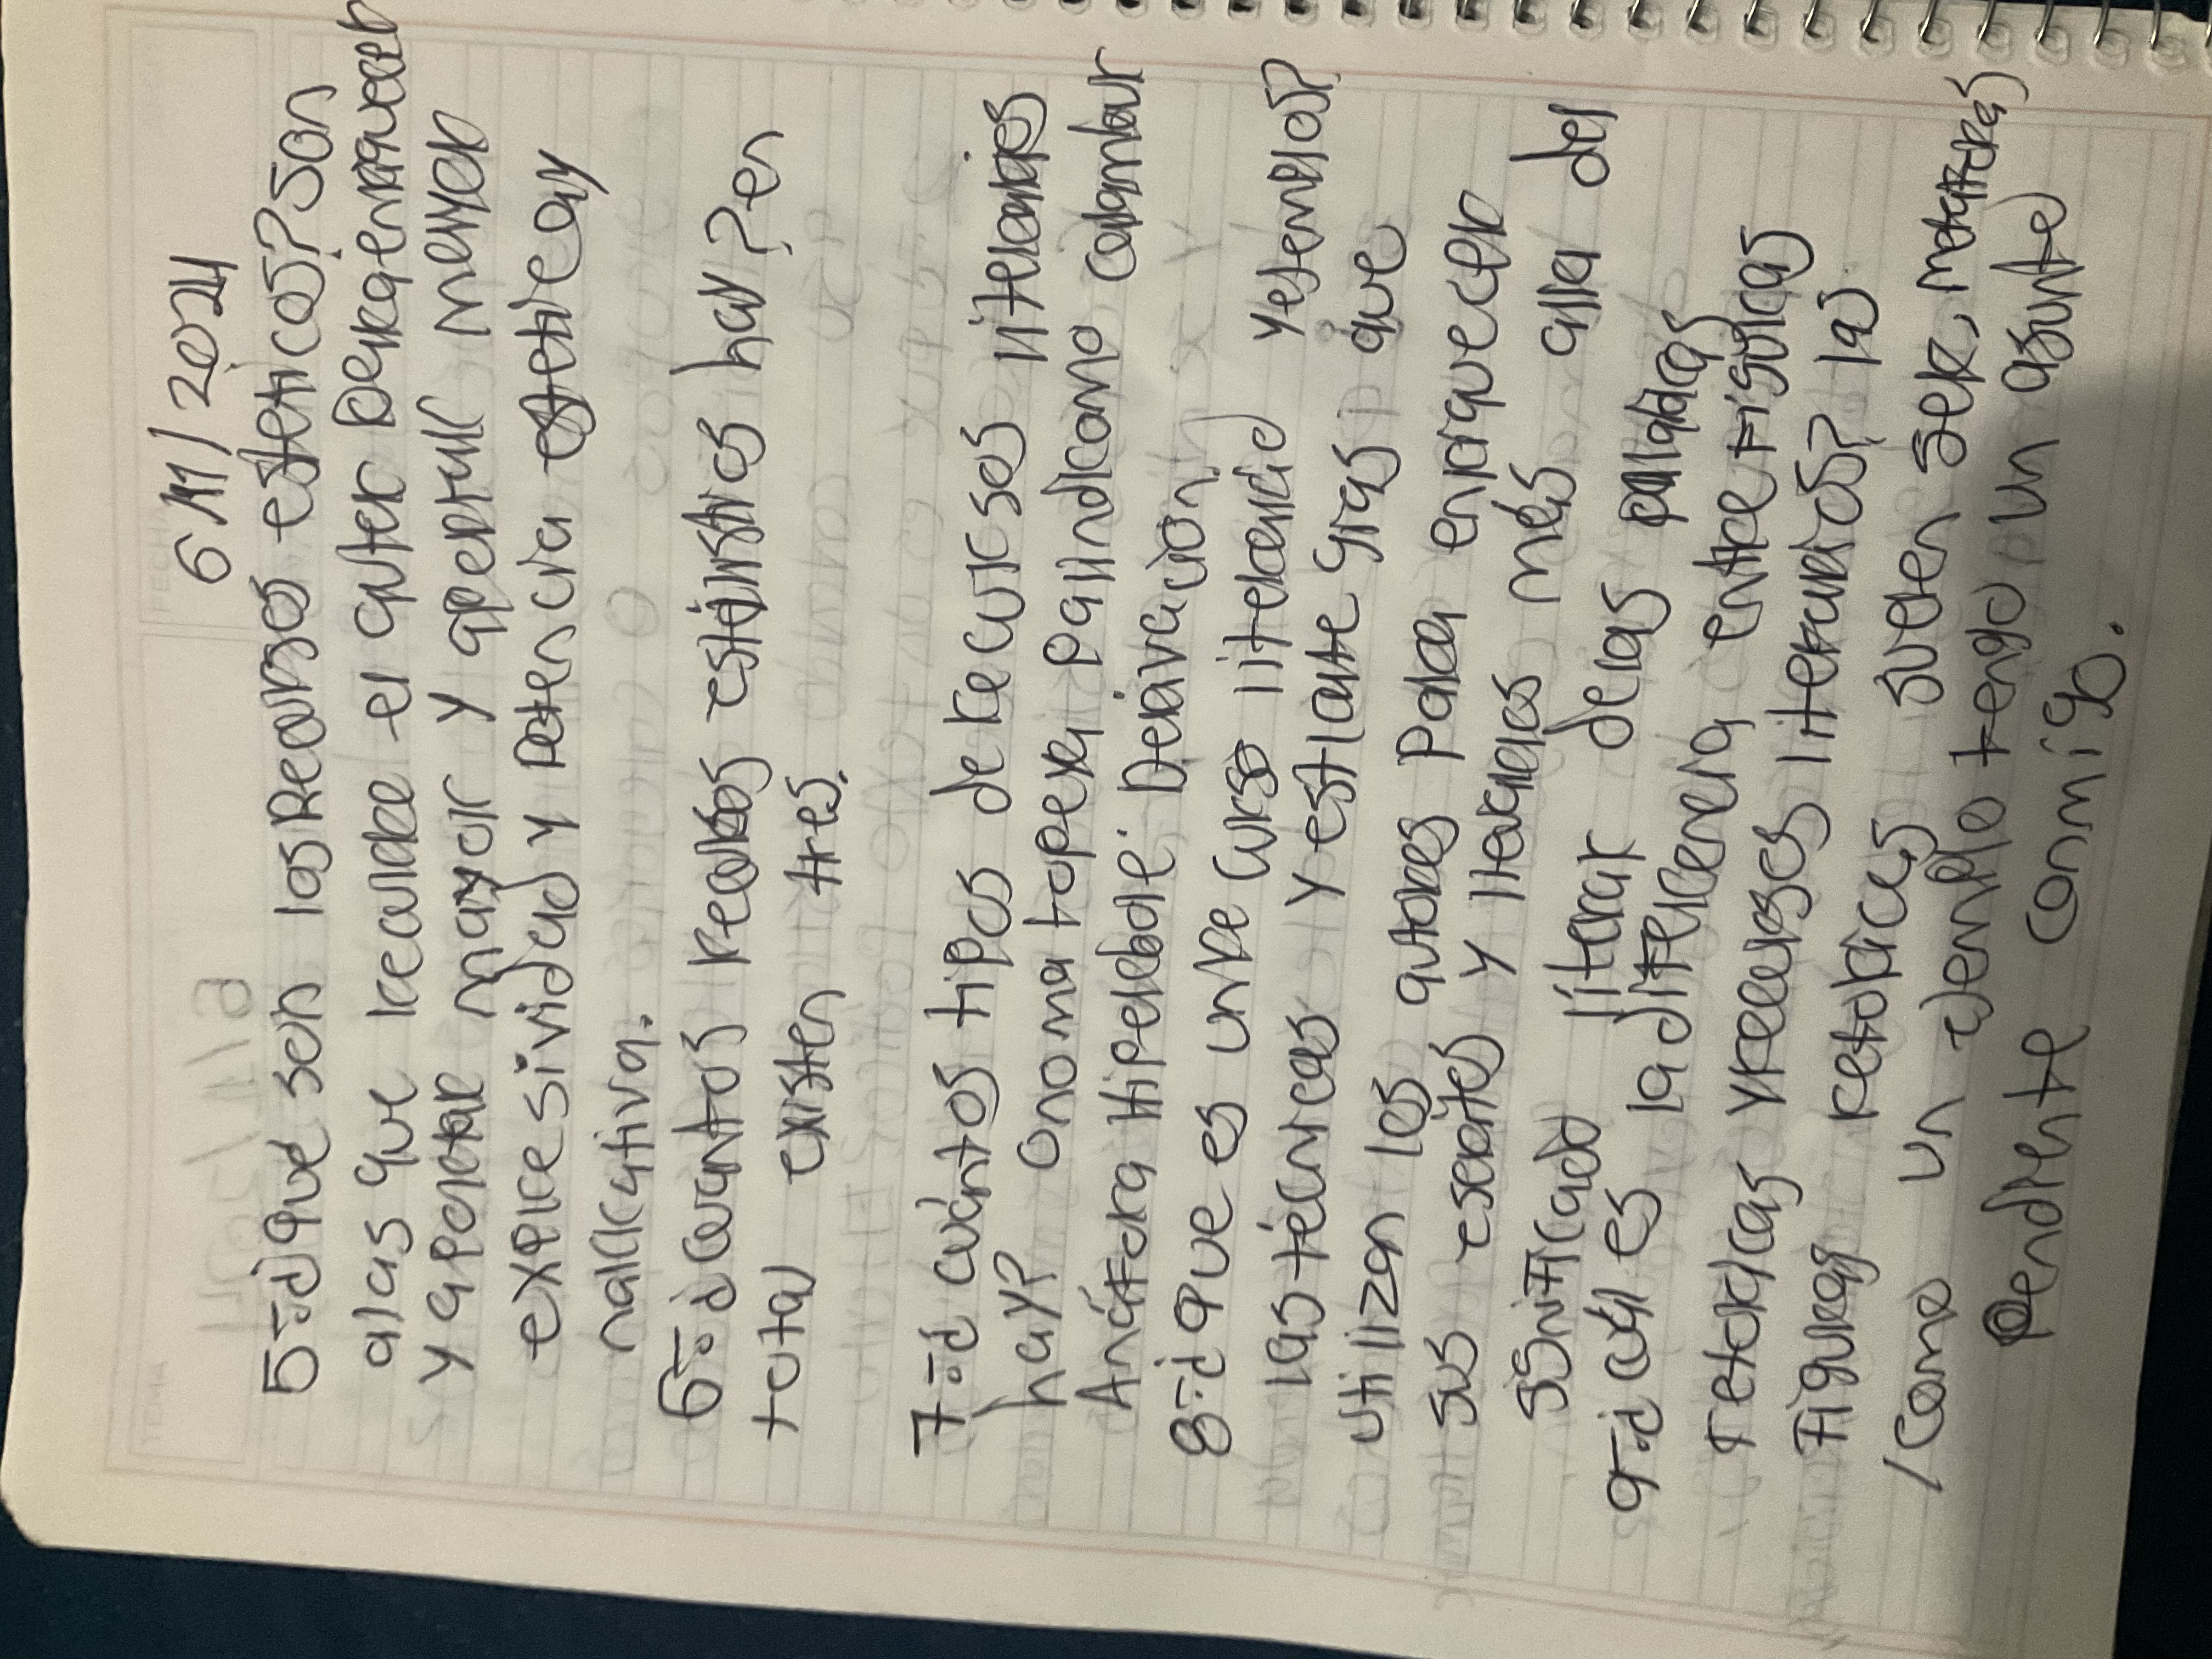 6/11/2024
5-¿que son los Recursos esteticos? son
alas que recurre el autor Para enriquecer
y aportar mayor y apertur meyer
expresividad y Potencia estetica y
narrativa.
6-¿cuantos recursos estilisticos hay? en
total existen tres.
7-¿cuántos tipos de recursos literarios
hay? onomatopeya palindromo calambur
Anáfora Hiperbole. Derivacion.
8-¿que es unre curso literario y ejemplos?
las técnicas y estrate gias que
utilizan los autores para enriquecer
sus escritos y llevarlos más alla del
significado literar delas palabras
9-¿cuál es la diferencia entre figuras
retoricas y recursos literarios? las
Figuras retoricas suelen ser, metaforas
/como un ejemplo tengo un asunto
Pendiente conmigo.